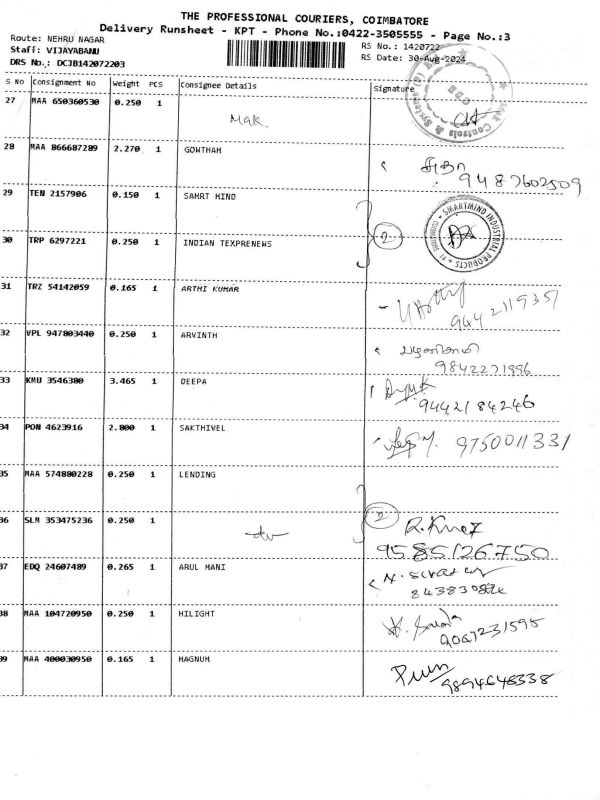 THE PROFESSIONAL COURIERS, COIMBATORE
Delivery Runsheet - KPT - Phone No.:0422-3505555 - Page No.:3
Route: NEHRU NAGAR
Staff: VIJAYABANU
DRS No.: DCJB142072203
RS No.: 1420722
RS Date: 30-Aug-2024
S No Consignment No Weight PCS Consignee Details Signature
27 MAA 650360530 0.250 1
28 MAA 866687289 2.270 1 GOWTHAM
9487602509
29 TEN 2157906 0.150 1 SAMRT MIND
SMARTMIND INDUSTRIAL PRODUCTS
30 TRP 6297221 0.250 1 INDIAN TEXPRENEWS 2
31 TRZ 54142059 0.165 1 ARTHI KUMAR
9442119351
32 VPL 947803440 0.250 1 ARVINTH
9842271996
33 KMU 3546380 3.465 1 DEEPA
9442184246
34 PON 4623916 2.800 1 SAKTHIVEL 9750011331
35 MAA 574880228 0.250 1 LENDING
36 SLM 353475236 0.250 1 2
9585126750
37 EDQ 24607489 0.265 1 ARUL MANI
38 MAA 104720950 0.250 1 HILIGHT
9067231595
39 MAA 400030950 0.165 1 MAGNUM
9894646338